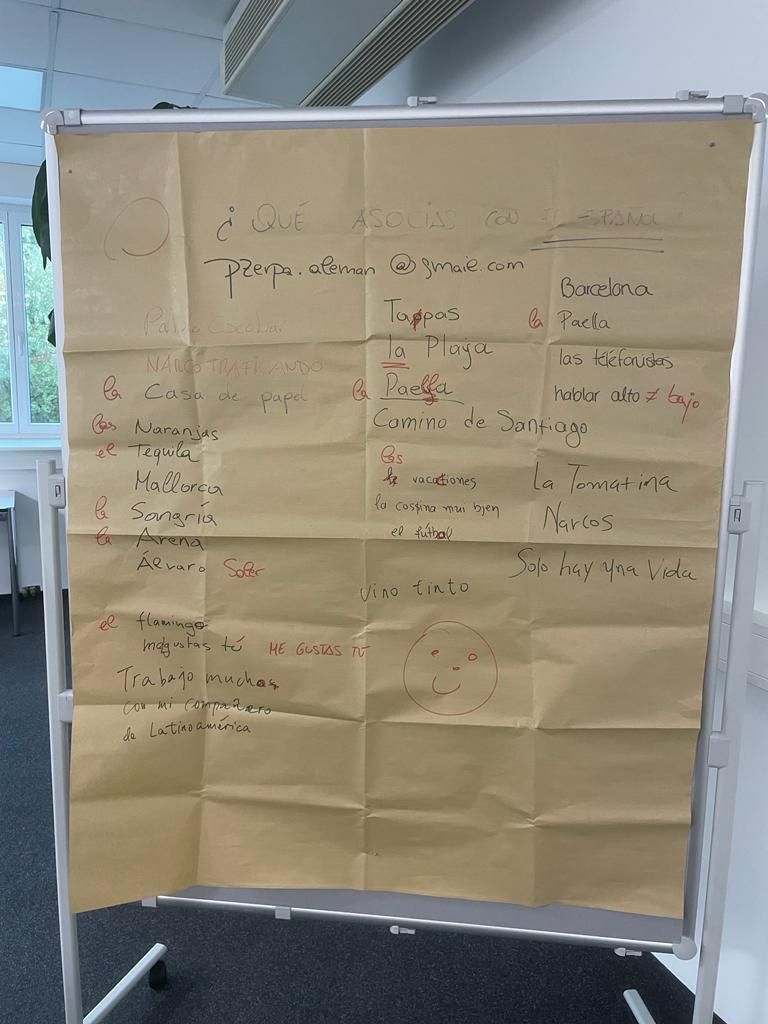 ¿ QUÉ ASOCIAS CON EL ESPAÑOL ?
pzerpa.aleman @gmail.com
Pablo Escobar
NARCOTRAFICANDO
la Casa de papel
las Naranjas
el Tequila
Mallorca
la Sangría
la Arena
Álvaro Soler
el flamingo
megustas tú ME GUSTAS TÚ
Trabajo mucho
con mi compañero
de Latinoamérica
Tappas
la Playa
la Paella
Camino de Santiago
las
vacaciones
la cossina mui bien
el fútbol
vino tinto
Barcelona
la Paella
las teléfonistas
hablar alto ≠ bajo
La Tomatina
Narcos
Solo hay una Vida